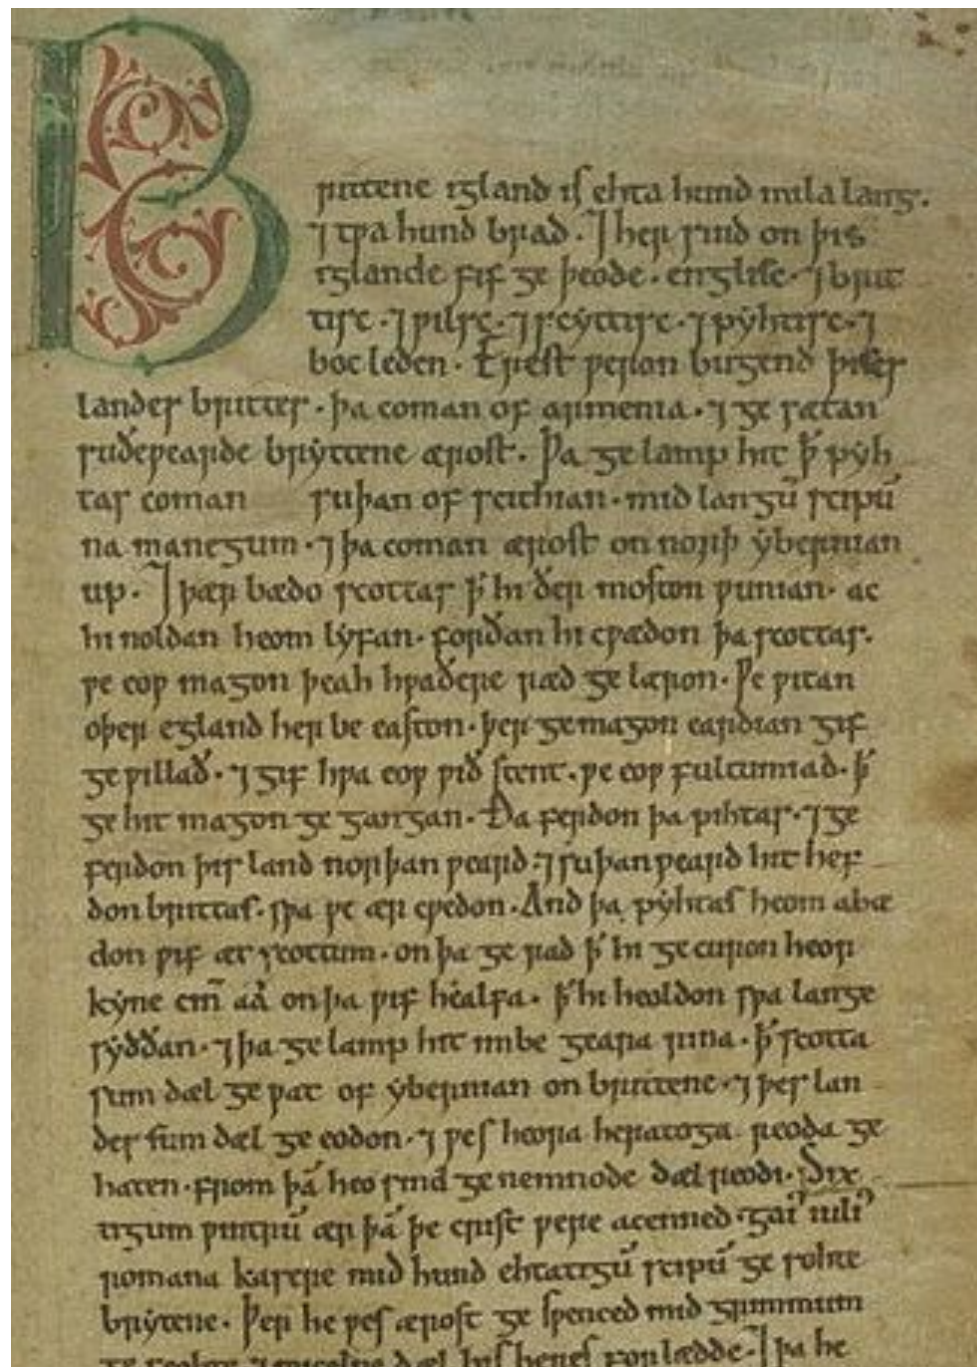 Brittene igland is ehta hund mila lang.
⁊ tƿa hund brad. ⁊ her sind on þis
iglande fif ge þeode. englisc. ⁊ brit
tisc. ⁊ ƿilsc. ⁊ scẏttisc. ⁊ pẏhtisc. ⁊
boc leden. Erest ƿeron bugend þises
landes brittes. þa coman of armenia. ⁊ ge sætan
suðeƿearde brẏttene ærost. Þa ge lamp hit þ̄ pẏh
tas coman suþan of scithian. mid langū scipū
na manegum. ⁊ þa coman ærost on norþ ẏbernian
up. ⁊ þær bædo scottas þ̄ hi ðer moston ƿunian. ac
hi noldan heom lẏfan. forðan hi cƿædon þa scottas.
ƿe eoƿ magon þeah hƿaðere ræd ge læron. Ƿe ƿitan
oþer egland her be easton. þer ge magon eardian gif
ge ƿillað. ⁊ gif hƿa eoƿ ƿið stent. ƿe eoƿ fultumiad. þ̄
ge hit magon ge gangan. Ða ferdon þa pihtas. ⁊ ge
ferdon þis land norþan ƿeard. ⁊ suþan ƿeard hit hef
don brittas. sƿa ƿe ær cƿedon. And þa pẏhtas heom abæ
don ƿif æt scottum. on þa ge rad þ̄ hi ge curon heor
kẏne cin̄ aa on þa ƿif healfa. þ̄ hi heoldon sƿa lange
sẏððan. ⁊ þa ge lamp hit imbe geara rina. þ̄ scotta
sum dæl ge ƿat of ẏbernian on brittene. ⁊ þes lan
des sum dæl ge eodon. ⁊ ƿes heora heratoga reoda ge
haten. from þā heo sind ge nemnode dæl reodi. Six
tigum ƿintrū ær þā þe crist ƿere acenned. gaiꝰ iuliꝰ
romana kasere mid hund ehtatigū scipū ge sohte
brẏtene. Þer he ƿes ærost ge sƿenced mid grimmum
ge feohte. ⁊ micelne dæl his heres forlædde. ⁊ þa he